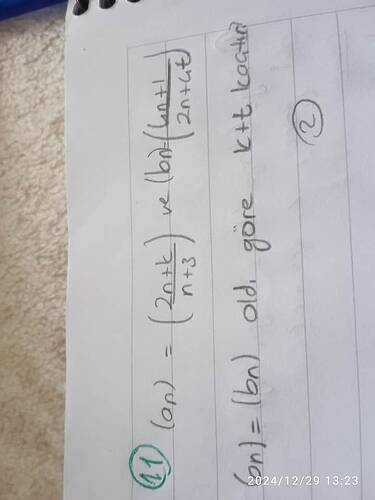 11 (an) = (2n+k / n+3) ve (bn) = (4n+1 / 2n+4t)
(an) = (bn) old. göre k+t kaçtır
2
2024/12/29 13:23